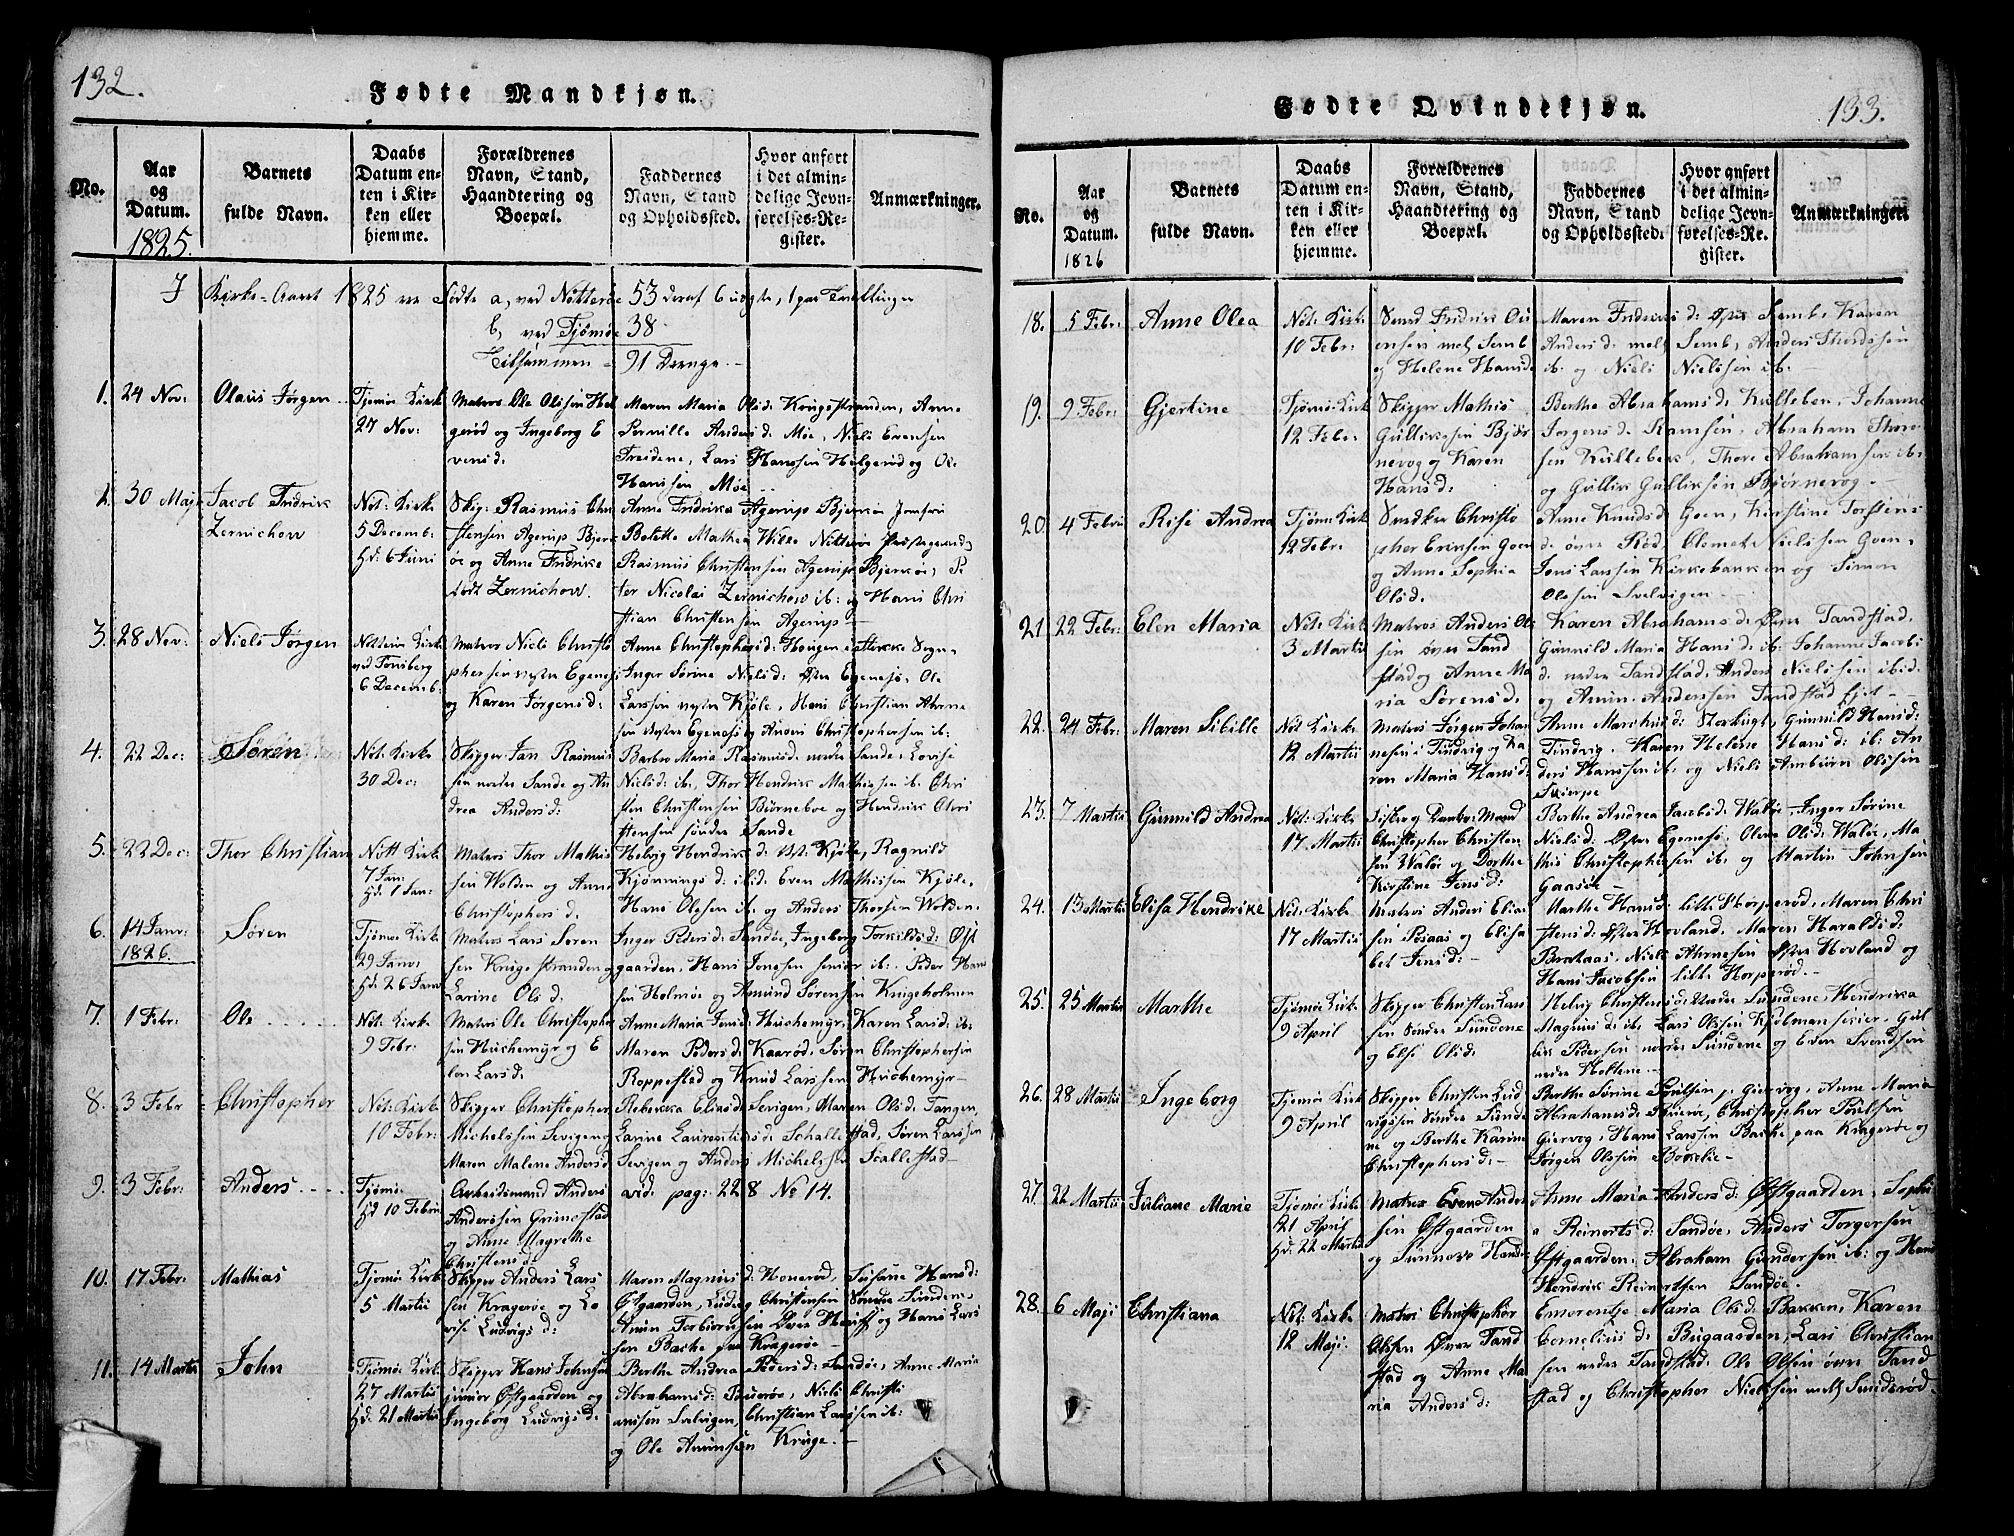 132.
Fødte Mandkjøn.
No.
Aar og Datum. 1825.
Barnets fulde Navn.
Daabs Datum enten i Kirken eller hjemme.
Forældrenes Navn, Stand, Haandtering og Boepæl.
Faddernes Navn, Stand og Opholdssted.
Hvor anført i det almindelige Jevnførelses-Register.
Anmærkninger.
Kirke-Aaret 1825 ere Fødte a, ved Nøtterøe 53 deraf 6 uægte, 1 par Tvillinger
b, ved Tjømøe 38
Tilsammen = 91 Drenge
1. 24 Nov: Olaus Jørgen
Tjømøe Kirk
27 Nov:
Matros Ole Olssen Hel
gerød og Ingeborg E
vensd:
Maren Maria Olsd: Krugestranden, Anne
Pernille Anders d: Møe, Niels Evensen
Lars Hanssen Helgerød og Ole
Hanssen Møe
2. 30 Maji Jacob Fredrik
Zernichow
Not: Kirk
5 Decemb:
hd: 6 Juni
Skip: Rasmus Chri
stensen Agerup Bjerk
øe og Anne Fredrike
født Zernichow.
Anne Fredrika Agerup Bjerkøe Jomfru
Bolette Mathea Wille Nøtterøe Præstegaard,
Rasmus Christensen Agerup Bjerkøe, Pe
ter Nicolai Zernichow ib: og Hans Chri
stian Christensen Agerup
3. 28 Nov: Niels Jørgen
Nøtterøe Kirk
ved Tønsberg
6 Decemb:
Matros Niels Christo
phersen vestre Egenes
og Karen Jørgensd:
Anne Christophersd: Hougen
Inger Sørine Nielsd: Østre Egenesø, Ole
Larssen vestre Kjøle, Hans Christian Ahrne
sen Vestre Egenesø og Anders Christophersen ib:
4. 22 Dec: Søren
Not: Kirk
30 Dec:
Skipper Jan Rasmus
sen nedre Sande og An
drea Andersd:
Barbro Maria Rasmusd: nedre Sande, Lovise
Nielsd: ib. Thor Hendrik Mathiesen ib. Chri
sten Christensen Bjørneboe og Hendrik Chri
stensen søndre Sande
5. 22 Dec: Thor Christian
Nott Kirk
7 Jan:
hd: 1 Jan:
Matros Thor Mathis
sen Wolden og Anne
Christophers d.
Helvig Hendriks d: Vst: Kjøle, Ragnild
Kjønnings d: ibid: Even Mathissen Kjøle,
Hans Olssen ib. og Anders Thorsen Wolden.
6. 14 Janv: Søren
1826.
Tjømøe Kirk
29 Janv:
hd: 26 Janv
Matros Lars Søren
sen Krugestranden og
Larine Olsd.
Inger Peders d: Sandøe, Ingeborg Torkildsd: Øst
gaarden, Hans Jonssen senior ib. Peder Hans
sen Holmøe og Amund Sørensen Krugeholmen
7. 1 Febr: Ole
Not: Kirk
9 Febr:
Matros Ole Christopher
sen Huchemyr og E
len Larsd.
Anne Maria Jensd: Huchemyr, Karen Larsd: ib:
Maren Peders d: Kaarød, Søren Christophersen
Roppestad og Knud Larssen Huchemyr
8. 3 Febr Christopher
Not: Kirk
10 Febr:
Skipper Christopher
Michelssen Sevigen og
Maren Malene Andersd
Rebekka Eliasd: Sevigen, Maren Olsd: Tangen,
Larine Laurentiesd: Schallestad, Søren Larssen
Sevigen og Anders Michelssen Scallestad
9. 3 Febr: Anders
Tjømø
hd 10 Febru
Arbeidsmand Anders
Anderssen Grimestad
og Anne Magrethe
Christensd:
vid: pag: 228 No 14.
10. 17 Febr: Mathias
Tjømøe Kirk
5 Martii
Skipper Anders Lars
sen Kragerøe og Lo
vise Ludvigs d:
Maren Magnus d: Honerød, Susane Hansd:
Østgaarden, Ludvig Christensen Søndre Sundene,
Anun Torbiørnsen Øvre Havn og Hans Lars
sen Bache paa Kragerøe
11. 14 Martii John
Tjømøe Kirk
27 Martii
hd: 21 Martii
Skipper Hans Johnsen
junior Østgaarden og
Ingeborg Ludvigs d:
Berthe Andrea Pedersd: Sandøe, Anne Maria
Abrahamsd: Niels Christi
anssen Sælvigen, Christian Larssen ib:
og Ole Anunsen Kruge.
133.
Fødte Qvindekjøn.
No.
Aar og Datum. 1826
Barnets fulde Navn.
Daabs Datum enten i Kirken eller hjemme.
Forældrenes Navn, Stand, Haandtering og Boepæl.
Faddernes Navn, Stand og Opholdssted.
Hvor anført i det almindelige Jevnførelses-Register.
Anmærkninger.
18. 5 Febr: Anne Olea
Not: Kirk
10 Febr:
Smed Fredrik
ensen mel: Semb
og Helene Hansd
Maren Fredriks d: Øvre Semb, Karen
Anders d: mel: Semb, Anders Thordssen
ib: og Niels Nielssen ib:
19. 9 Febr: Gjertine
Tjømøe Kirk
12 Febr:
Skipper Mathis
Gullikssen Bjør
nevog og Karen
Hansd:
Berthe Abrahamsd: Kulleben, Johanne
Jørgensd: Ramsøen, Abraham Thore
sen Kullebek, Thore Abrahamsen ib:
og Gullik Gullikssen Bjørnevog.
20. 4 Febru Risi Andrea
Tjømøe Kirk
12 Febr:
Snedker Christo
pher Ericksen Goen
og Anne Sophia
Olsd.
Anne Knudsd: Goen, Kirstine Torstens
d: øvre Rød, Clemet Nielssen Goen,
Jens Larssen Kirkebakken og Simon
Olssen Sælvigen
21 22 Febr: Elen Maria
Not: Kirk
3 Martii
Matros Anders Ols
sen øvre Tand
stad og Anne Ma
ria Sørensd.
Karen Abrahamsd: Øvre Tandstad,
Gunnild Maria Hansd: ib: Johanne Jacobs
d. nedre Tandstad, Anders Nielssen ibid:
og Anun Anderssen Tandstad Eie
22. 24 Febr: Maren Sibille
Not: Kirk
12 Martii
Matros Jørgen Johan
nesen Tindvig og Ka
ren Maria Hansd:
Anne Marthe d: Gunnild Hansd:
Tindvig, Karen Helene Hansd: ib: An
ders Hanssen ib. og Niels Ambiørn Olssen
23. 7 Martii Gunnild Andrea
Not: Kirk
17 Martii
Fisker og Danbr: Mand
Christopher Christen
sen Waløe og Dorthe
Kirstine Jensd:
Berthe Andrea Jacobsd: Waløe, Inger Sørine
Nielsd: Østre Egenesø, Olea Olsd: Waløe, Ma
this Christophersen ib. og Martin Johnsen
Gaasøe
24. 13 Martii Elisa Hendrike
Not: Kirke
17 Martii
Matros Anders Elias
sen og Elisa
bet Jensd:
Marthe Hansd: lille Horperød, Maren Chri
stensd: Østre Hovland, Maren Haraldsd:
Brataas, Niels Ahrnesen Østre Hovland og
Hans Jacobsen lille Horperød.
25. 25 Martii Marthe
Tjømøe Kirk
9 April
Skipper Christen Lars
sen Søndre Sundene
og Elsi Olsd.
Helvig Christensd: Nedre Sundene, Hendrika
Magnus d: ib. Lars Olssen Kjølman senior, Gul
lik Pedersen nordre Sundene og Even Svendssen
nedre Holtene
26. 28 Martii Ingeborg
Tjømøe Kirk
9 April
Skipper Christen Lud
vigssen Søndre Sunde
ne og Berthe Karine
Christophersd:
Berthe Sørine Poulsen, Giervog, Anne Maria
Abrahamsd: Christopher Poulsen
Giervog, Hans Larssen Bache paa Kragerøe og
Jørgen Olssen
27. 22 Martii Juliane Marie
Tjømøe Kirk
21 April
hd: 22 Martii
Matros Even Ander
sen Østgaarden
og Sunneve Hansd
Anne Maria Andersd: Østgaarden, Sophi
a Reinerts d: Sandøe, Anders Torgersen
Østgaarden, Abraham Gundersen ib: og Hans
Hendrik Reinertsen Sandøe.
28. 6 Maji Christiana
Not: Kirke
12 Maji:
Matros Christophor
Olssen Øvre Tand
stad og Anne Ma
ria Andersd:
Emerentse Maria Olsd: Bakken, Karen
Cornelius d: Bugaarden, Lars Christian
sen nedre Tandstad, Ole Olssen øvre Tand
stad og Christopher Nielssen mell: Sunderød.